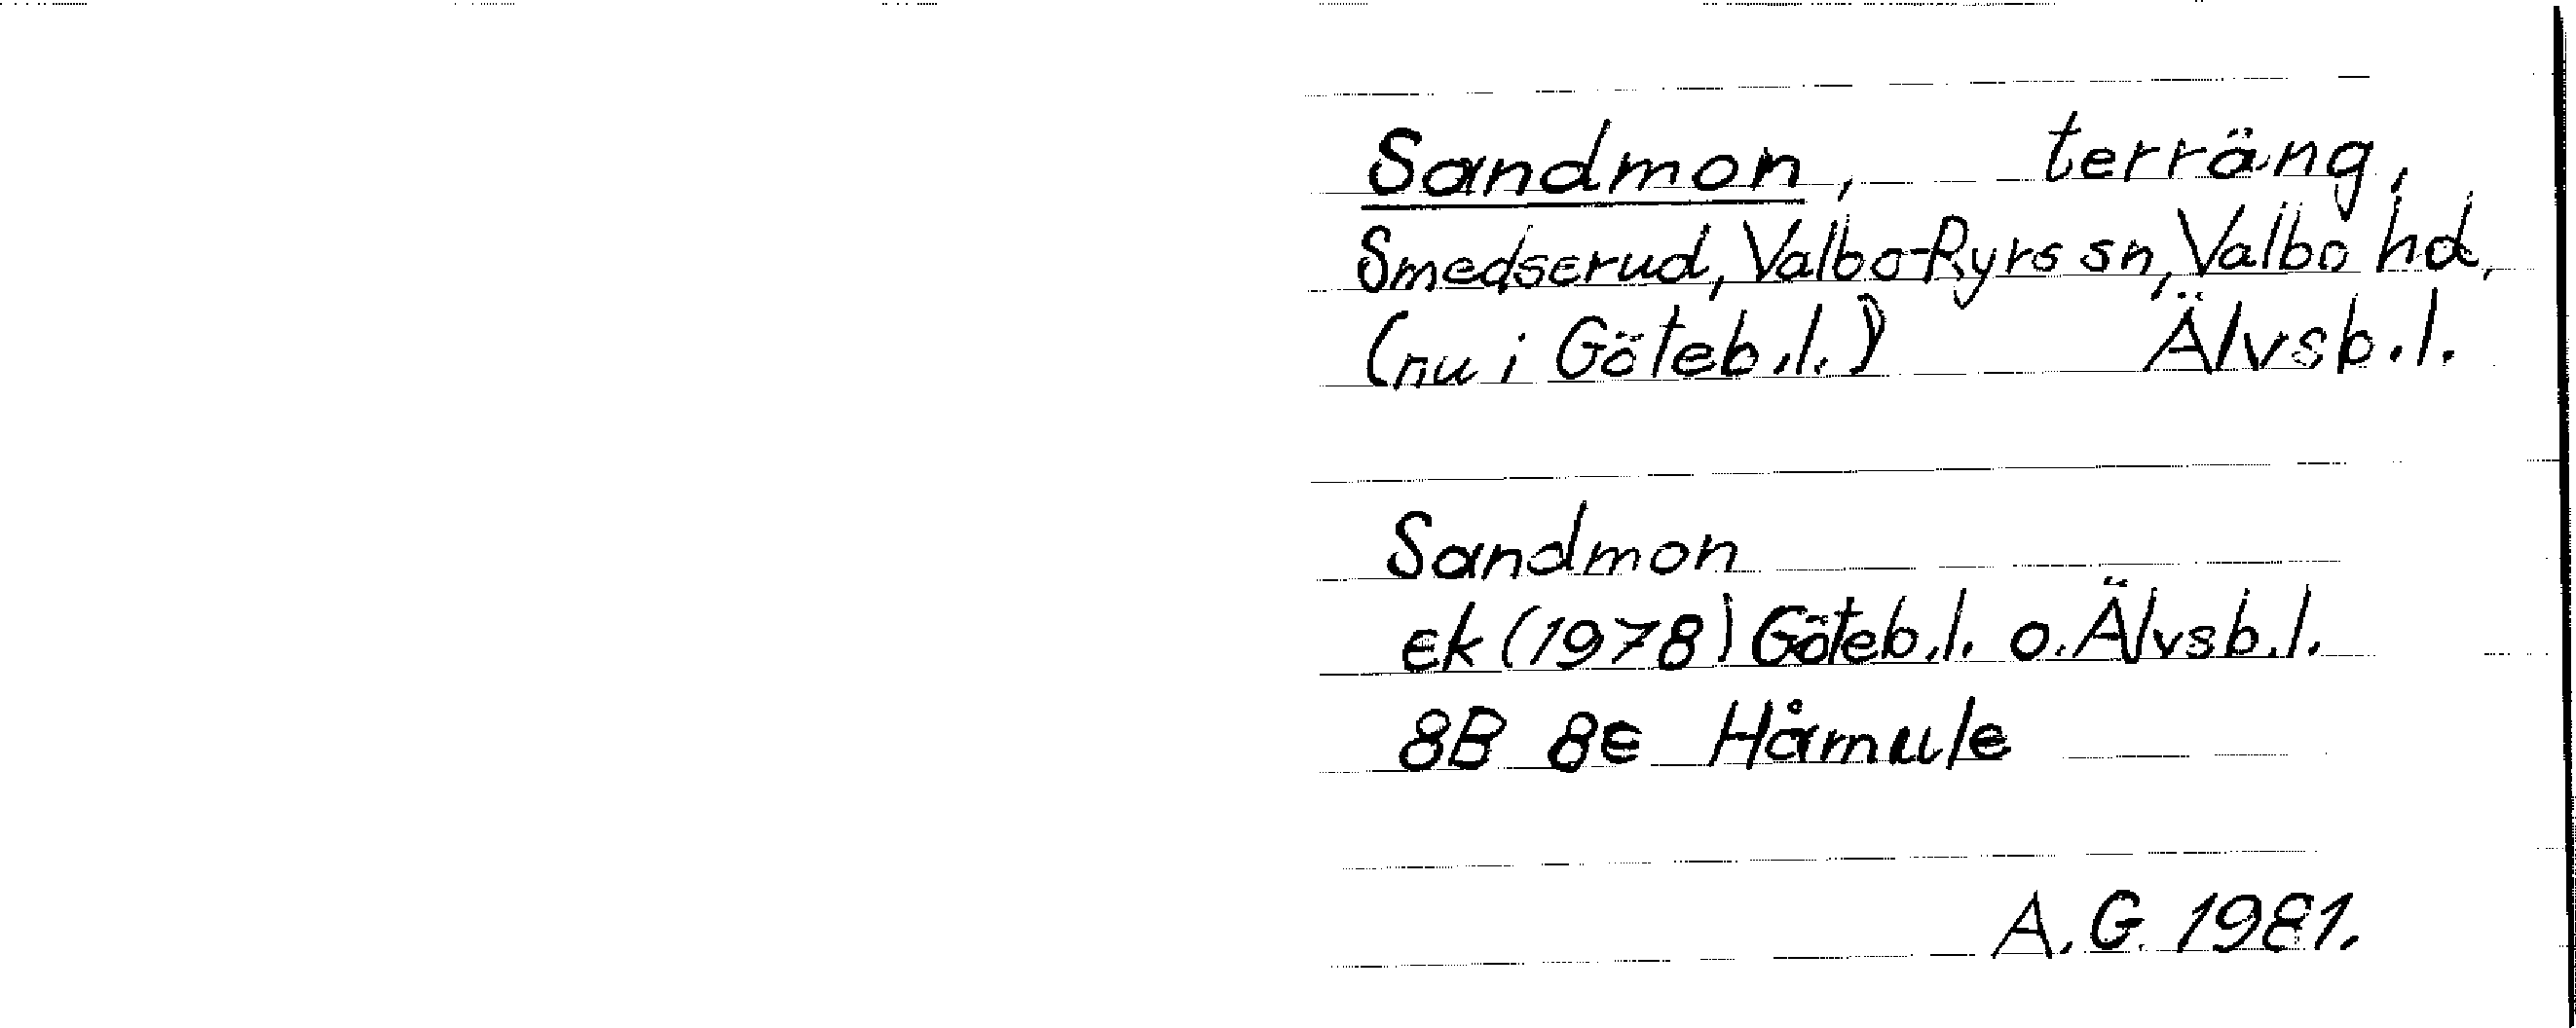 Sandmon, terräng,
Smedserud, Valbo-Ryrs sn, Valbo hd,
(nu i Göteb.l.) Älvsb.l.
Sandmon
ek (1978) Göteb.l. o. Älvsb.l.
8B 8e Håmule
A.G. 1981.